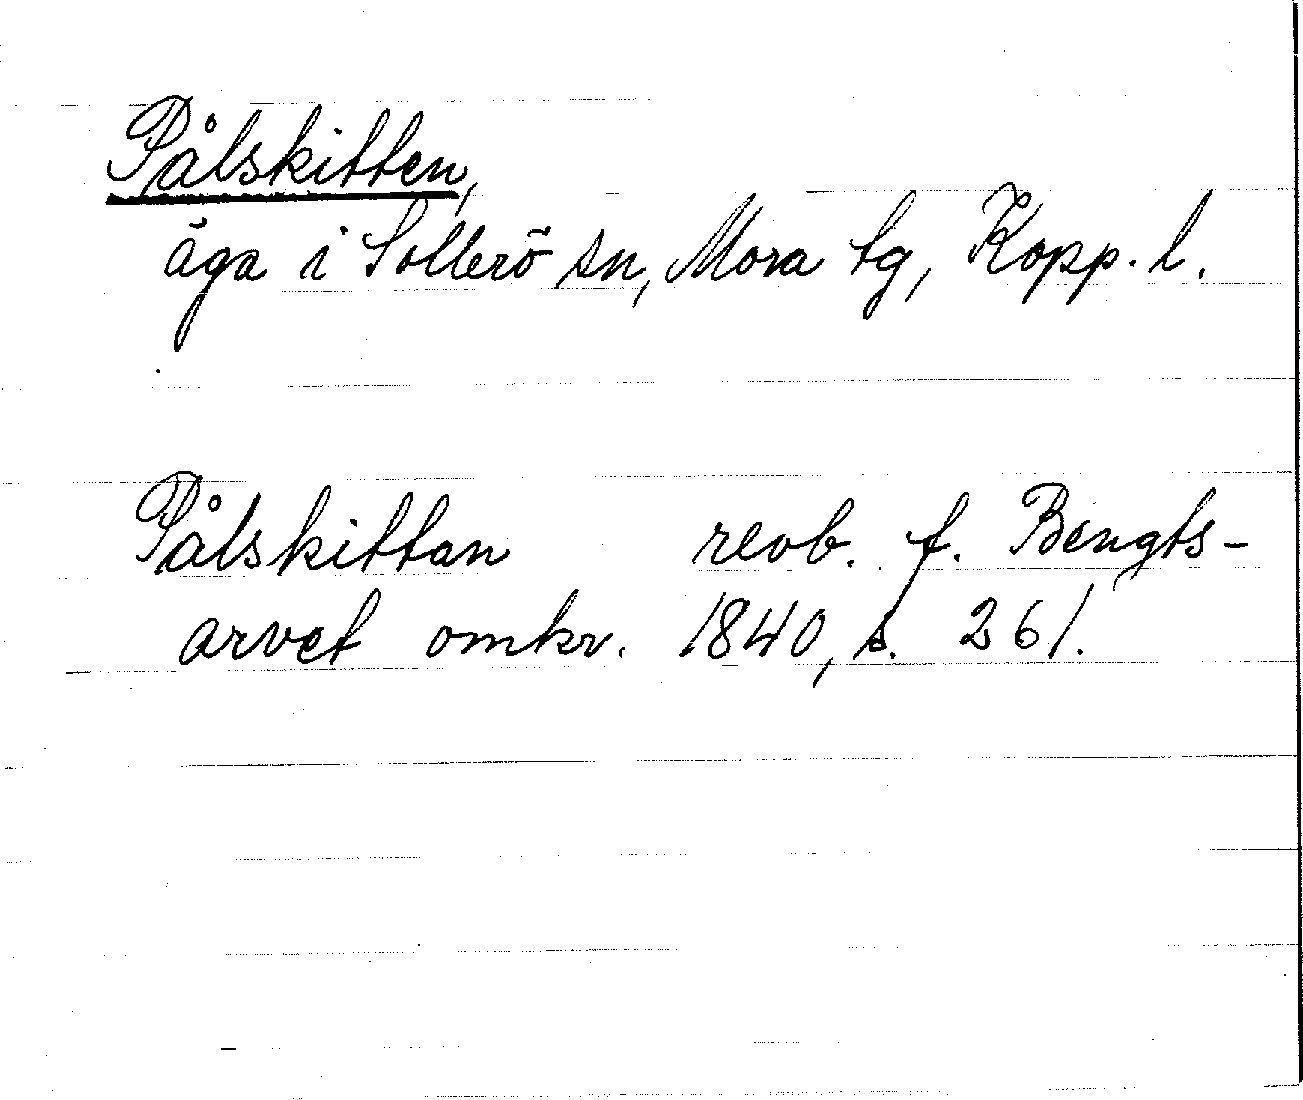 Pålskitten,
äga i Sollerö sn, Mora tg, Kopp. l.
Pålskittan revb. f. Bengts-
arvet omkr. 1840, s. 261.